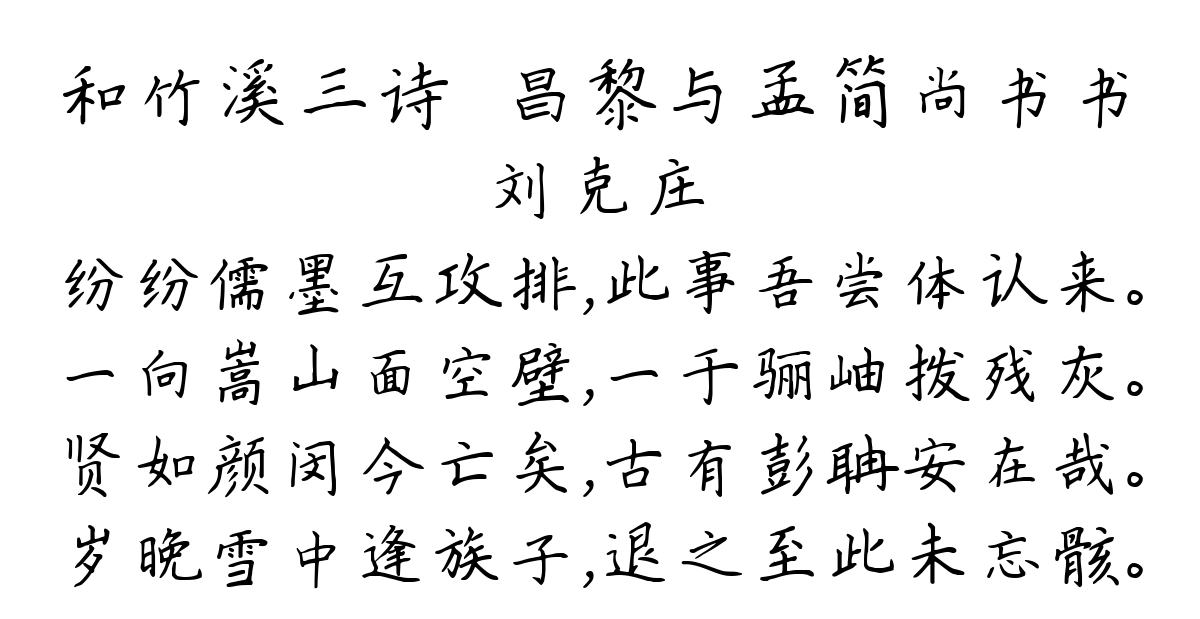 和竹溪三诗 昌黎与孟简尚书书
刘克庄
纷纷儒墨互攻排,此事吾尝体认来。
一向嵩山面空壁,一于骊岫拨残灰。
贤如颜闵今亡矣,古有彭聃安在哉。
岁晚雪中逢族子,退之至此未忘骸。